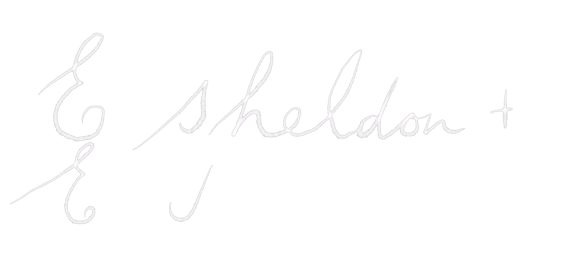 E sheldon +
E J